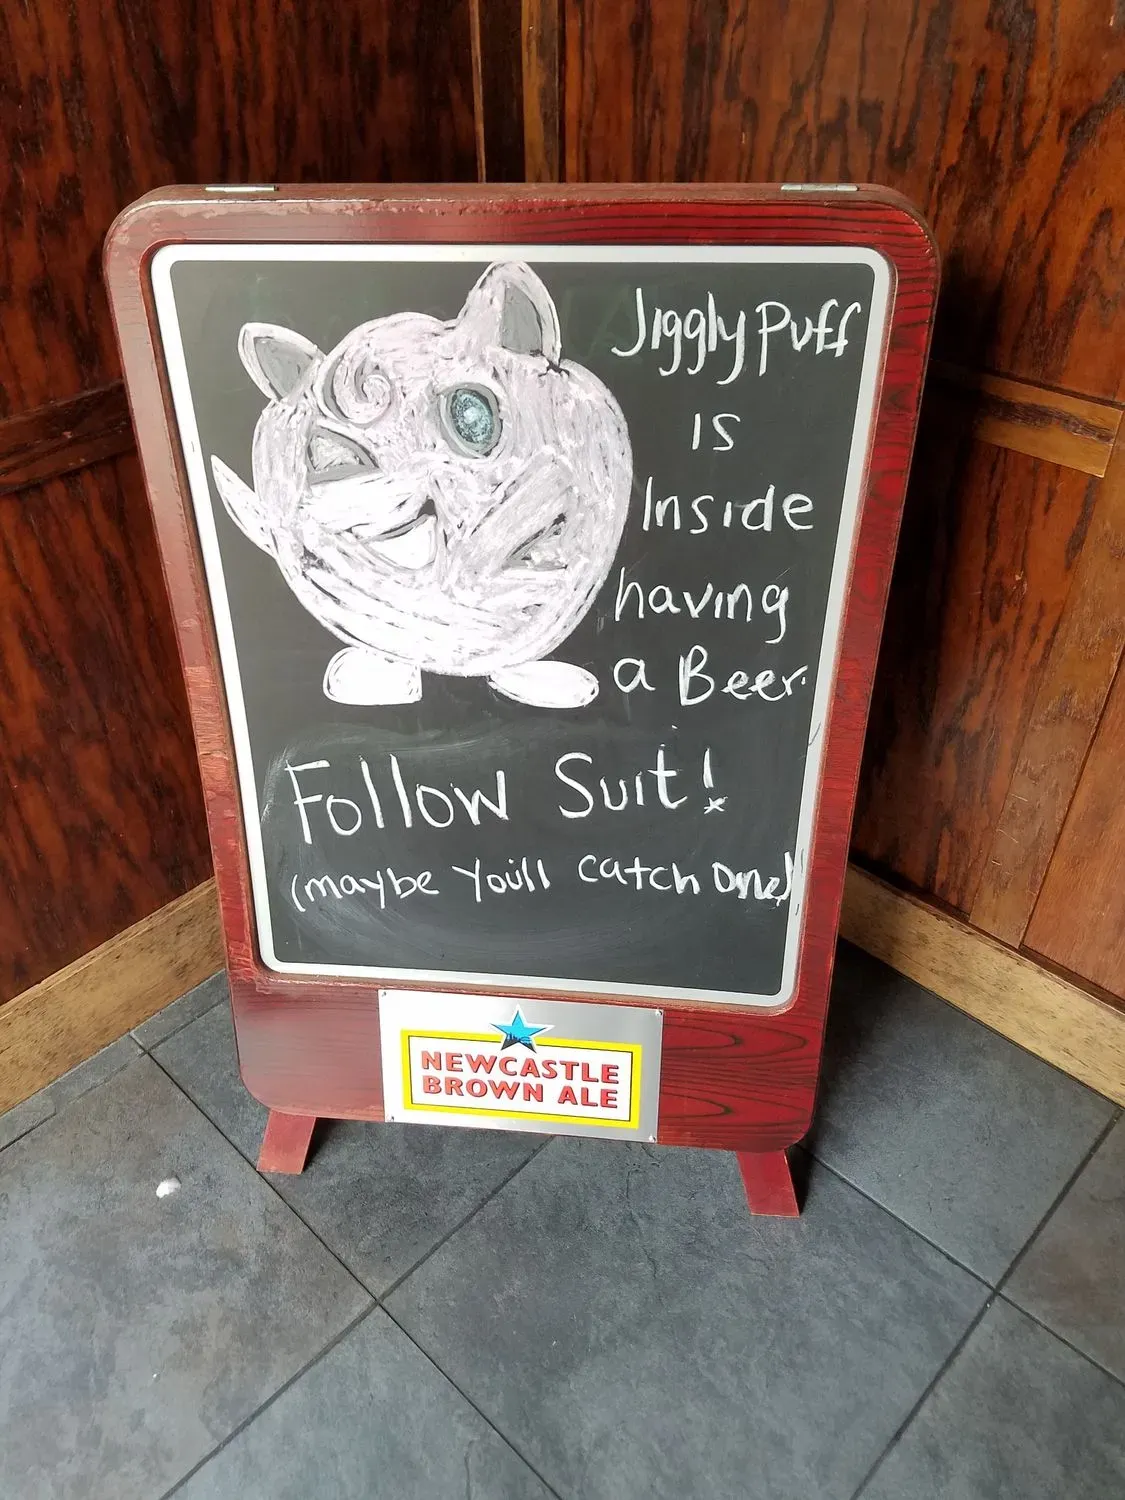 Jiggly Puff
is
Inside
having
a Beer.
Follow Suit!
(maybe You'll catch One)
NEWCASTLE
BROWN ALE